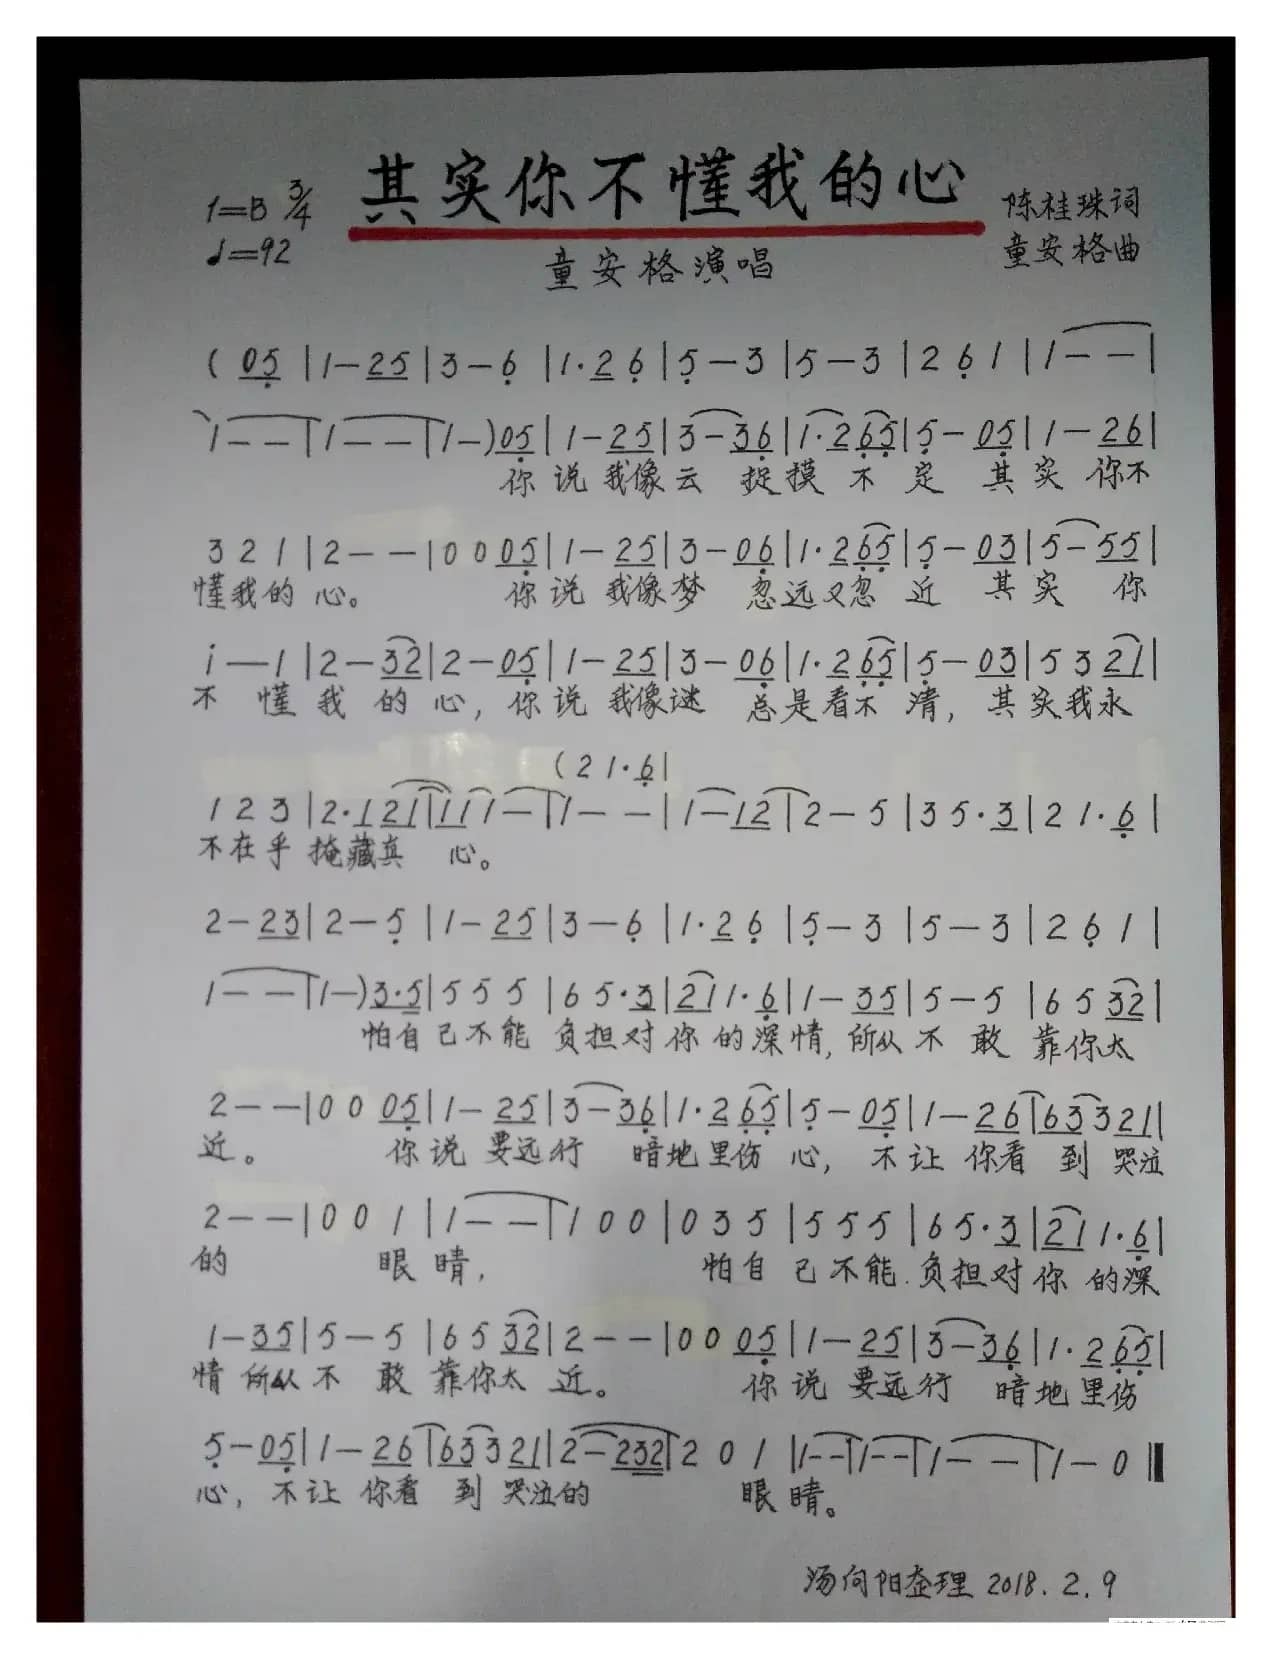 其实你不懂我的心
1=B 3/4
♩=92
陈桂珠词
童安格曲
童安格演唱
( 05 | 1-25 | 3-6 | 1·26 | 5-3 | 5-3 | 261 | 1-- |
1-- | 1-- | 1-) 05 | 1-25 | 3-36 | 1·265 | 5-05 | 1-26 |
你说我像云 捉摸不定 其实你不
321 | 2-- | 0005 | 1-25 | 3-06 | 1·265 | 5-03 | 5-55 |
懂我的心。 你说我像梦 忽远又忽近 其实你
i-1 | 2-32 | 2-05 | 1-25 | 3-06 | 1·265 | 5-03 | 5321 |
不懂我的心, 你说我像谜 总是看不清, 其实我永
(21·6|
123 | 2·121 | 111- | 1-- | 1-12 | 2-5 | 35·3 | 21·6 |
不在乎掩藏真心。
2-23 | 2-5 | 1-25 | 3-6 | 1·26 | 5-3 | 5-3 | 261 |
1-- | 1-) 3·5 | 555 | 65·3 | 211·6 | 1-35 | 5-5 | 6532 |
怕自己不能负担对你的深情, 所以不敢靠你太
2-- | 0005 | 1-25 | 3-36 | 1·265 | 5-05 | 1-26 | 63321 |
近。 你说要远行 暗地里伤心, 不让你看到哭泣
2-- | 001 | 1-- | 100 | 035 | 555 | 65·3 | 211·6 |
的 眼睛, 怕自己不能负担对你的深
1-35 | 5-5 | 6532 | 2-- | 0005 | 1-25 | 3-36 | 1·265 |
情所以不敢靠你太近。 你说要远行 暗地里伤
5-05 | 1-26 | 63321 | 2-232 | 201 | 1-- | 1-- | 1-- | 1-0 ‖
心, 不让你看到哭泣的 眼睛。
汤向阳整理 2018.2.9